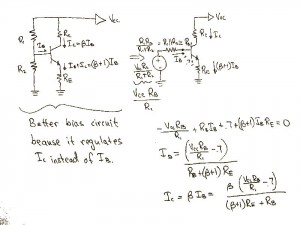 VCC
R1
RC
↓IC=βIB
IB
IB+IC=(β+1)IB
R2
RE
R1R2/(R1+R2) = R1||R2 = RB
VCC
RC
↓IC
IB
.7
VCCR2/(R1+R2)
RE
↓(β+1)IB
VCC RB/R1
Better bias circuit
because it regulates
IC instead of IB.
-VCCRB/R1 + RBIB + .7 + (β+1)IBRE = 0
IB = (VCCRB/R1 - .7)/(RB+(β+1)RE)
IC = βIB = β(VCCRB/R1 - .7)/((β+1)RE+RB)